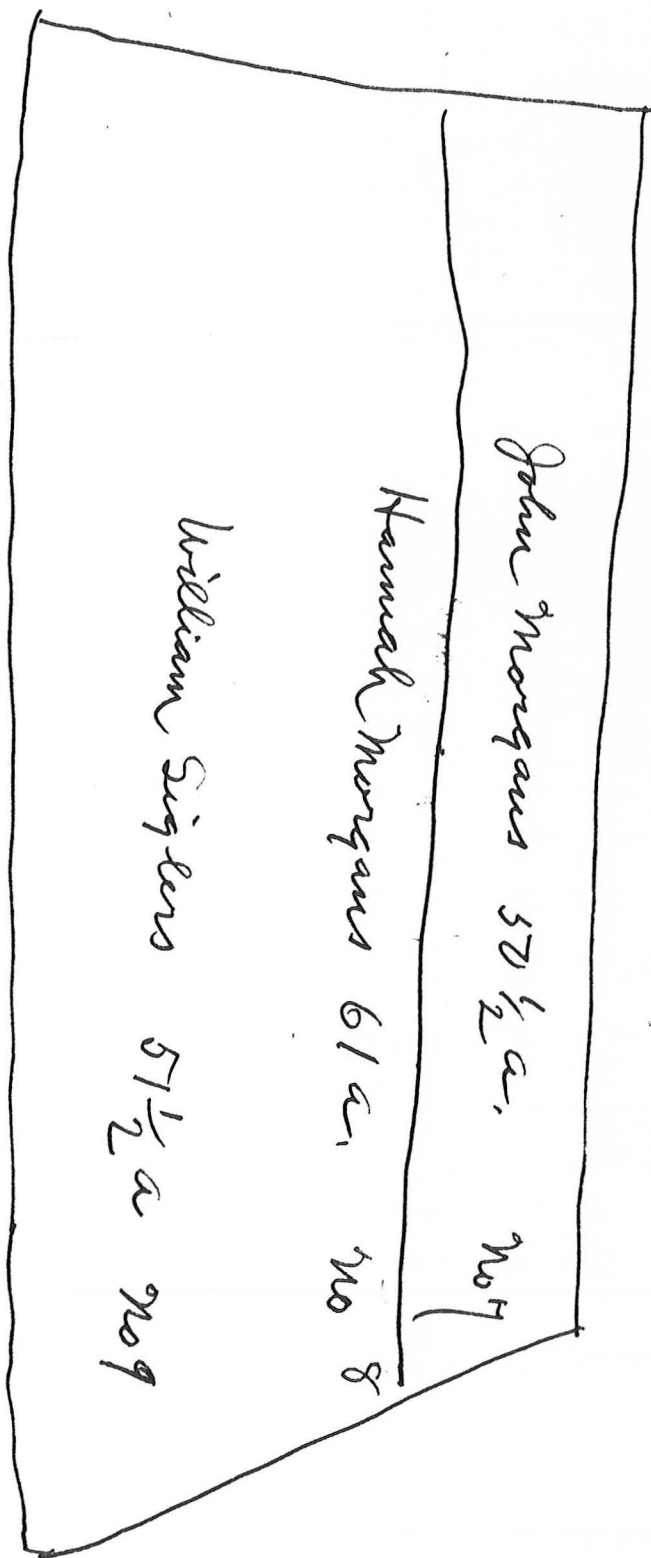 John Morgans 50 ½ a. No 7
Hannah Morgans 61 a. No 8
William Siglers 51 ½ a No 9